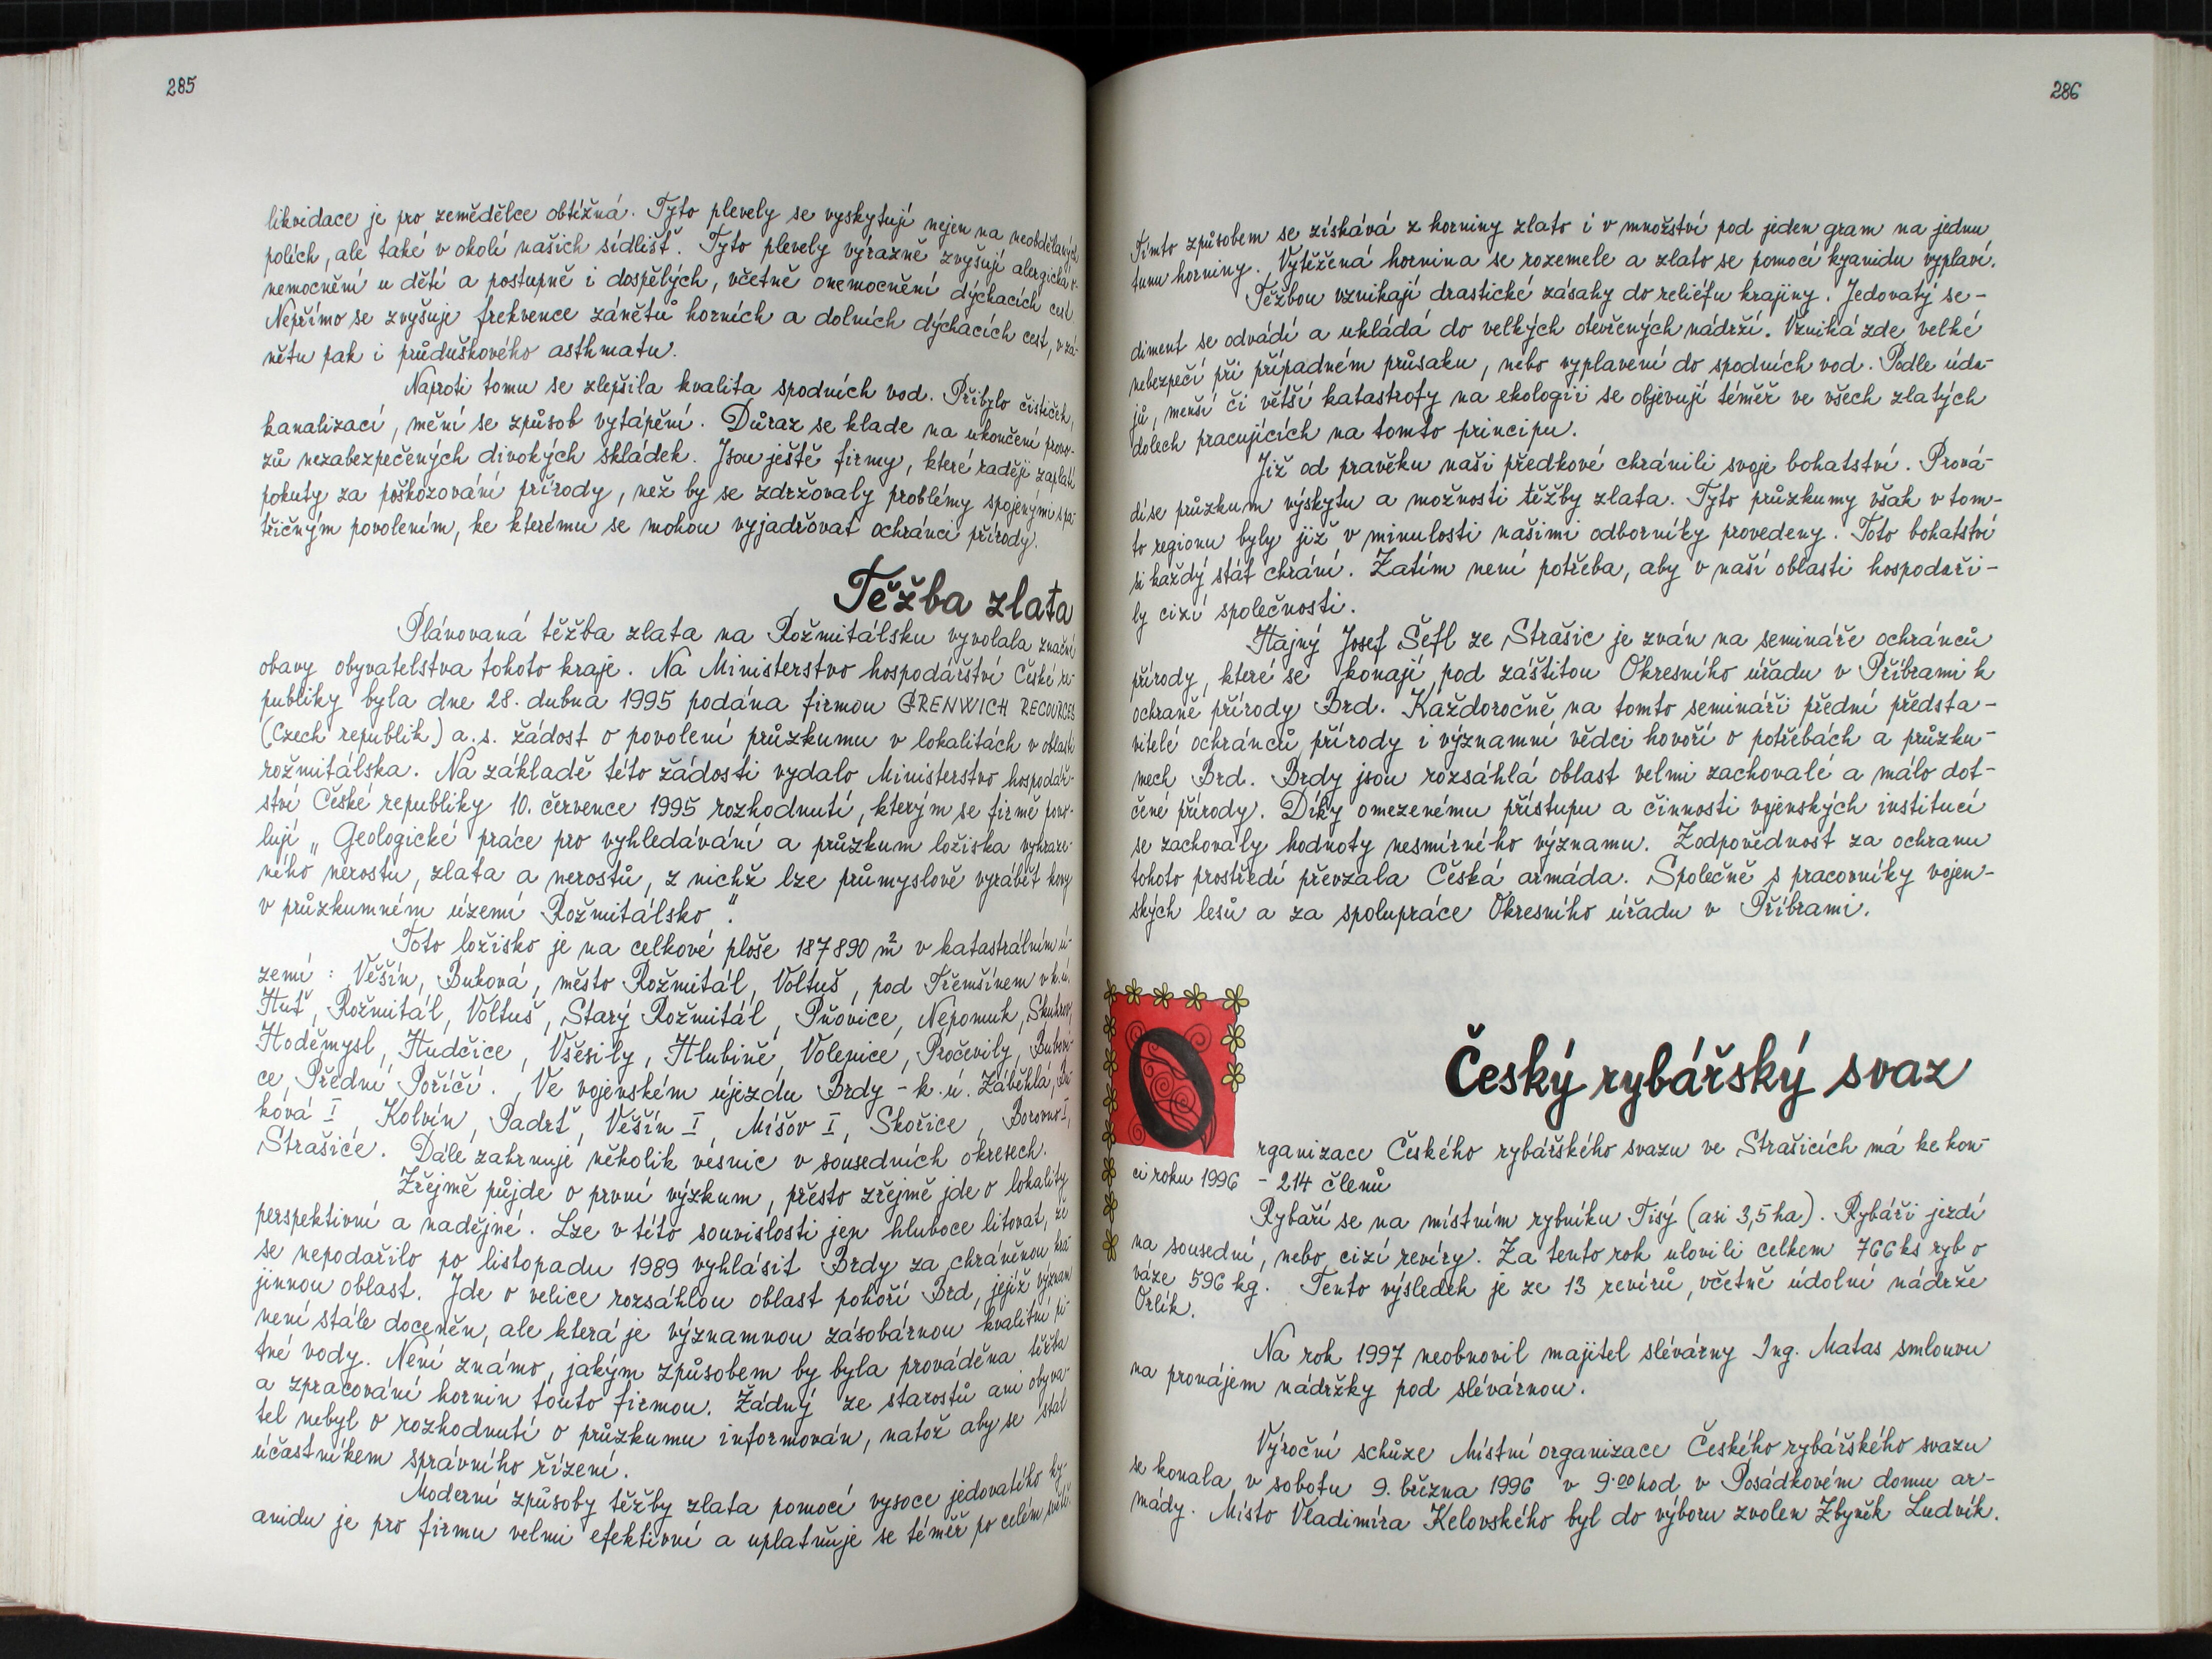 285
likvidace je pro zemědělce obtížná. Tyto plevely se vyskytují nejen na neobdělaných
polích, ale také v okolí našich sídlišť. Tyto plevely výrazně zvyšují alergická o-
nemocnění u dětí a postupně i dospělých, včetně onemocnění dýchacích cest.
Nepřímo se zvyšuje frekvence zánětů horních a dolních dýchacích cest, v zá-
nětu pak i průduškového asthmatu.
Naproti tomu se zlepšila kvalita spodních vod. Přibylo čističek,
kanalizací, mění se způsob vytápění. Důraz se klade na ukončení provo-
zů nezabezpečených divokých skládek. Jsou ještě firmy, které raději zaplatí
pokuty za poškozování přírody, než by se zdržovaly problémy spojenými s pa-
třičným povolením, ke kterému se mohou vyjadřovat ochránci přírody.
Těžba zlata
Plánovaná těžba zlata na Rožmitálsku vyvolala značné
obavy obyvatelstva tohoto kraje. Na Ministerstvo hospodářství České re-
publiky byla dne 28. dubna 1995 podána firmou GRENWICH RECOURCES
(Czech republik) a.s. žádost o povolení průzkumu v lokalitách v oblasti
rožmitálska. Na základě této žádosti vydalo Ministerstvo hospodář-
ství České republiky 10. července 1995 rozhodnutí, kterým se firmě povo-
lují „Geologické práce pro vyhledávání a průzkum ložiska vyhraze-
ného nerostu, zlata a nerostů, z nichž lze průmyslově vyrábět kovy
v průzkumném území Rožmitálsko".
Toto ložisko je na celkové ploše 187890 m² v katastrálním ú-
zemí: Věšín, Buková, město Rožmitál, Voltuš, pod Třemšínem v k.ú.
Huť, Rožmitál, Voltuš, Starý Rožmitál, Pňovice, Nepomuk, Skuhrov,
Hoděmysl, Hudčice, Všesily, Hlubině, Volenice, Pročevily, Bubovi-
ce, Přední Poříčí. Ve vojenském újezdu Brdy - k.ú. Záběhlá, Bu-
ková I, Kolvín, Padrť, Věšín I, Míšov I, Skořice, Borovno I,
Strašice. Dále zahrnuje několik vesnic v sousedních okresech.
Zřejmě půjde o první výzkum, přesto zřejmě jde o lokality
perspektivní a nadějné. Lze v této souvislosti jen hluboce litovat, že
se nepodařilo po listopadu 1989 vyhlásit Brdy za chráněnou kra-
jinnou oblast. Jde o velice rozsáhlou oblast pohoří Brd, jejíž význam
není stále doceněn, ale která je významnou zásobárnou kvalitní pi-
tné vody. Není známo, jakým způsobem by byla prováděna těžba
a zpracování hornin touto firmou. Žádný ze starostů ani obyva-
tel nebyl o rozhodnutí o průzkumu informován, natož aby se stal
účastníkem správního řízení.
Moderní způsoby těžby zlata pomocí vysoce jedovatého ky-
anidu je pro firmu velmi efektivní a uplatňuje se téměř po celém světě.
286
Tímto způsobem se získává z horniny zlato i v množství pod jeden gram na jednu
tunu horniny. Vytěžená hornina se rozemele a zlato se pomocí kyanidu vyplaví.
Těžbou vznikají drastické zásahy do reliéfu krajiny. Jedovatý se-
diment se odvádí a ukládá do velkých otevřených nádrží. Vzniká zde velké
nebezpečí při případném průsaku, nebo vyplavení do spodních vod. Podle úda-
jů, menší či větší katastrofy na ekologii se objevují téměř ve všech zlatých
dolech pracujících na tomto principu.
Již od pravěku naši předkové chránili svoje bohatství. Prová-
dí se průzkum výskytu a možnosti těžby zlata. Tyto průzkumy však v tom-
to regionu byly již v minulosti našimi odborníky provedeny. Toto bohatství
si každý stát chrání. Zatím není potřeba, aby v naší oblasti hospodaři-
ly cizí společnosti.
Hajný Josef Šefl ze Strašic je zván na semináře ochránců
přírody, které se konají pod záštitou Okresního úřadu v Příbrami k
ochraně přírody Brd. Každoročně na tomto semináři přední předsta-
vitelé ochránců přírody i významní vědci hovoří o potřebách a průzku-
mech Brd. Brdy jsou rozsáhlá oblast velmi zachovalé a málo dot-
čené přírody. Díky omezenému přístupu a činnosti vojenských institucí
se zachovaly hodnoty nesmírného významu. Zodpovědnost za ochranu
tohoto prostředí převzala Česká armáda. Společně s pracovníky vojen-
ských lesů a za spolupráce Okresního úřadu v Příbrami.
Český rybářský svaz
Organizace Českého rybářského svazu ve Strašicích má ke kon-
ci roku 1996 - 214 členů
Rybaří se na místním rybníku Tisý (asi 3,5 ha). Rybáři jezdí
na sousední, nebo cizí revíry. Za tento rok ulovili celkem 766 ks ryb o
váze 596 kg. Tento výsledek je ze 13 revírů, včetně údolní nádrže
Orlík.
Na rok 1997 neobnovil majitel slévárny Ing. Matas smlouvu
na pronájem nádržky pod slévárnou.
Výroční schůze Místní organizace Českého rybářského svazu
se konala v sobotu 9. března 1996 v 9.00 hod. v Posádkovém domu ar-
mády. Místo Vladimíra Kelovského byl do výboru zvolen Zbyněk Ludvík.